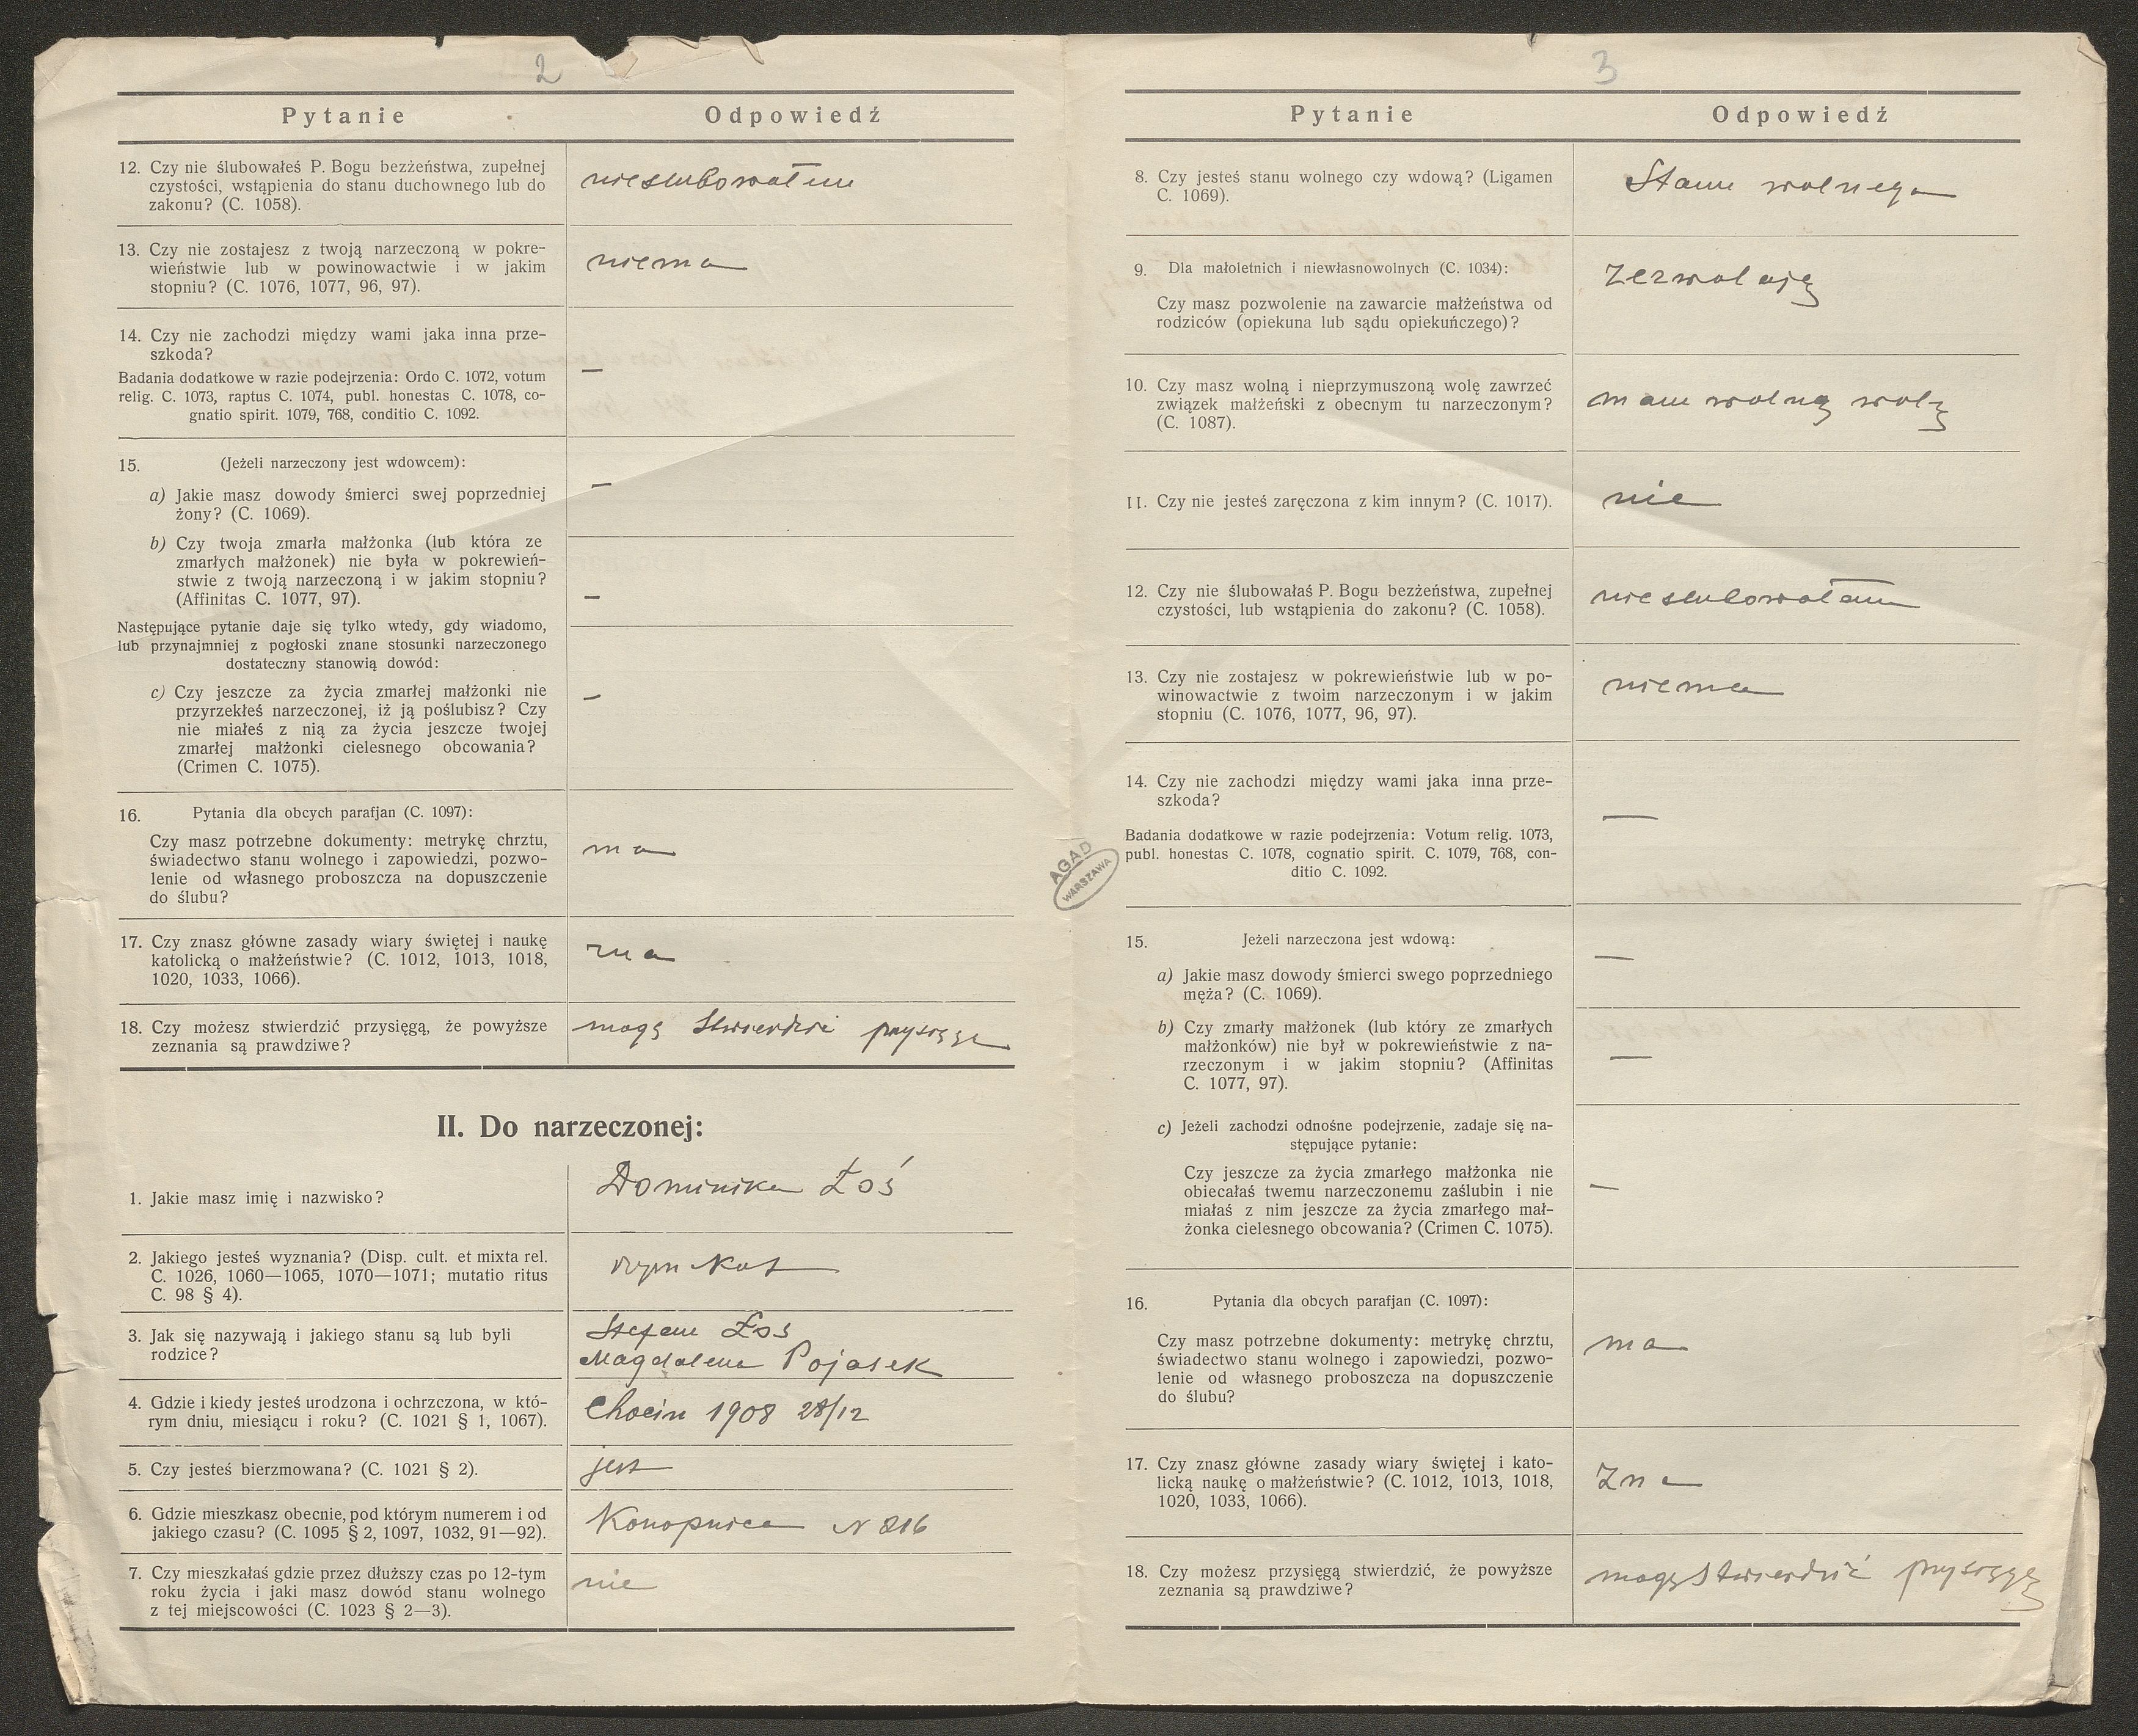 2
Pytanie
Odpowiedź
12. Czy nie ślubowałeś P. Bogu bezżeństwa, zupełnej
czystości, wstąpienia do stanu duchownego lub do
zakonu? (C. 1058).
nieslubowałem
13. Czy nie zostajesz z twoją narzeczoną w pokre-
wieństwie lub w powinowactwie i w jakim
stopniu? (C. 1076, 1077, 96, 97).
niema
14. Czy nie zachodzi między wami jaka inna prze-
szkoda?
Badania dodatkowe w razie podejrzenia: Ordo C. 1072, votum
relig. C. 1073, raptus C. 1074, publ. honestas C. 1078, co-
gnatio spirit. 1079, 768, conditio C. 1092.
—
15. (Jeżeli narzeczony jest wdowcem):
a) Jakie masz dowody śmierci swej poprzedniej
żony? (C. 1069).
—
b) Czy twoja zmarła małżonka (lub która ze
zmarłych małżonek) nie była w pokrewień-
stwie z twoją narzeczoną i w jakim stopniu?
(Affinitas C. 1077, 97).
—
Następujące pytanie daje się tylko wtedy, gdy wiadomo,
lub przynajmniej z pogłoski znane stosunki narzeczonego
dostateczny stanowią dowód:
c) Czy jeszcze za życia zmarłej małżonki nie
przyrzekłeś narzeczonej, iż ją poślubisz? Czy
nie miałeś z nią za życia jeszcze twojej
zmarłej małżonki cielesnego obcowania?
(Crimen C. 1075).
—
16. Pytania dla obcych parafjan (C. 1097):
Czy masz potrzebne dokumenty: metrykę chrztu,
świadectwo stanu wolnego i zapowiedzi, pozwo-
lenie od własnego proboszcza na dopuszczenie
do ślubu?
ma
17. Czy znasz główne zasady wiary świętej i naukę
katolicką o małżeństwie? (C. 1012, 1013, 1018,
1020, 1033, 1066).
zna
18. Czy możesz stwierdzić przysięgą, że powyższe
zeznania są prawdziwe?
mogę Stwierdzić przysięgą
II. Do narzeczonej:
1. Jakie masz imię i nazwisko?
Dominika Łoś
2. Jakiego jesteś wyznania? (Disp. cult. et mixta rel.
C. 1026, 1060—1065, 1070—1071; mutatio ritus
C. 98 § 4).
rzym kat
3. Jak się nazywają i jakiego stanu są lub byli
rodzice?
Stefan Łoś
Magdalena Pojasek
4. Gdzie i kiedy jesteś urodzona i ochrzczona, w któ-
rym dniu, miesiącu i roku? (C. 1021 § 1, 1067).
Chocin 1908 28/12
5. Czy jesteś bierzmowana? (C. 1021 § 2).
jest
6. Gdzie mieszkasz obecnie, pod którym numerem i od
jakiego czasu? (C. 1095 § 2, 1097, 1032, 91—92).
Konopnica N 816
7. Czy mieszkałaś gdzie przez dłuższy czas po 12-tym
roku życia i jaki masz dowód stanu wolnego
z tej miejscowości (C. 1023 § 2—3).
nie
AGAD
WARSZAWA
3
Pytanie
Odpowiedź
8. Czy jesteś stanu wolnego czy wdową? (Ligamen
C. 1069).
Stanu wolnego
9. Dla małoletnich i niewłasnowolnych (C. 1034):
Czy masz pozwolenie na zawarcie małżeństwa od
rodziców (opiekuna lub sądu opiekuńczego)?
Zezwalają
10. Czy masz wolną i nieprzymuszoną wolę zawrzeć
związek małżeński z obecnym tu narzeczonym?
(C. 1087).
mam wolną wolę
11. Czy nie jesteś zaręczona z kim innym? (C. 1017).
nie
12. Czy nie ślubowałaś P. Bogu bezżeństwa, zupełnej
czystości, lub wstąpienia do zakonu? (C. 1058).
nieslubowałam
13. Czy nie zostajesz w pokrewieństwie lub w po-
winowactwie z twoim narzeczonym i w jakim
stopniu (C. 1076, 1077, 96, 97).
niema
14. Czy nie zachodzi między wami jaka inna prze-
szkoda?
Badania dodatkowe w razie podejrzenia: Votum relig. 1073,
publ. honestas C. 1078, cognatio spirit. C. 1079, 768, con-
ditio C. 1092.
—
15. Jeżeli narzeczona jest wdową:
a) Jakie masz dowody śmierci swego poprzedniego
męża? (C. 1069).
—
b) Czy zmarły małżonek (lub który ze zmarłych
małżonków) nie był w pokrewieństwie z na-
rzeczonym i w jakim stopniu? (Affinitas
C. 1077, 97).
—
c) Jeżeli zachodzi odnośne podejrzenie, zadaje się na-
stępujące pytanie:
Czy jeszcze za życia zmarłego małżonka nie
obiecałaś twemu narzeczonemu zaślubin i nie
miałaś z nim jeszcze za życia zmarłego mał-
żonka cielesnego obcowania? (Crimen C. 1075).
—
16. Pytania dla obcych parafjan (C. 1097):
Czy masz potrzebne dokumenty: metrykę chrztu,
świadectwo stanu wolnego i zapowiedzi, pozwo-
lenie od własnego proboszcza na dopuszczenie
do ślubu?
ma
17. Czy znasz główne zasady wiary świętej i kato-
licką naukę o małżeństwie? (C. 1012, 1013, 1018,
1020, 1033, 1066).
Zna
18. Czy możesz przysięgą stwierdzić, że powyższe
zeznania są prawdziwe?
mogę Stwierdzić przysięgą